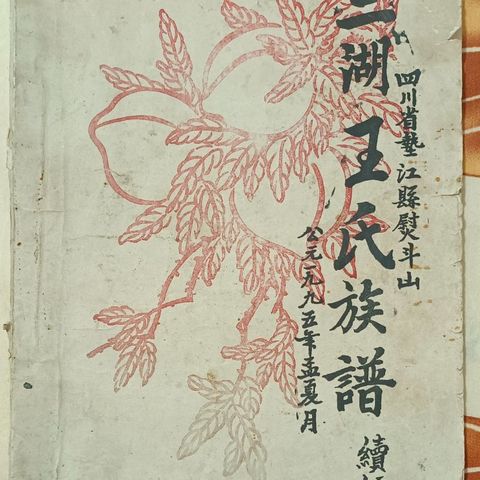 四川省墊江縣熨斗山
湖王氏族譜 續
公元一九九五年孟夏月